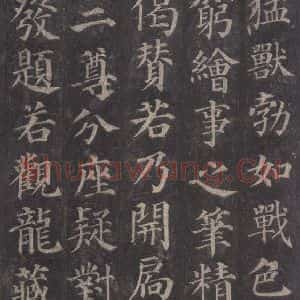 猛獸勃如戰色
窮繪事之筆精
偈贊若乃開扃
二尊分座疑對
發題若觀龍藏
shufawang.Cn